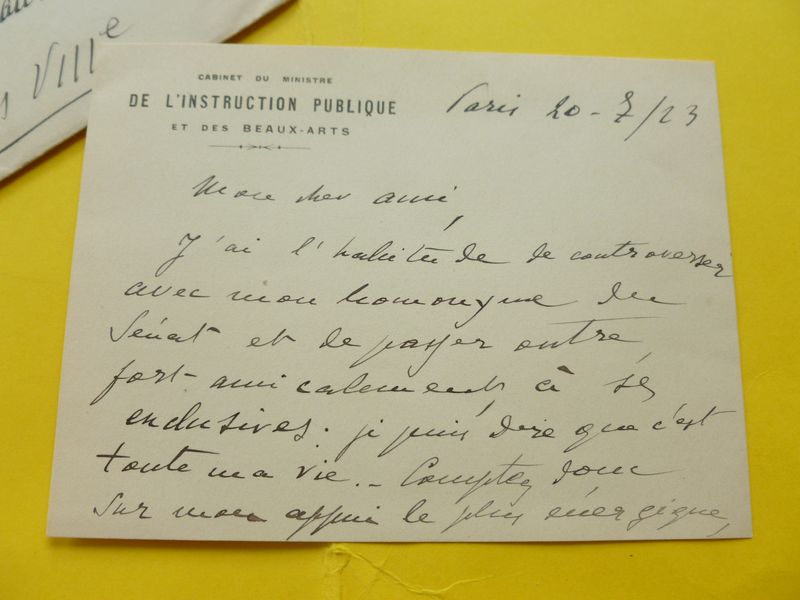 VIIIe
CABINET DU MINISTRE
DE L'INSTRUCTION PUBLIQUE
ET DES BEAUX-ARTS
Paris 20-7/23
Mon cher ami,
J'ai l'habitude de controverser
avec mon homonyme du
Sénat et de passer outre
fort amicalement à ses
exclusives. je puis dire que c'est
toute ma vie. _ Comptez donc
sur mon appui le plus énergique,